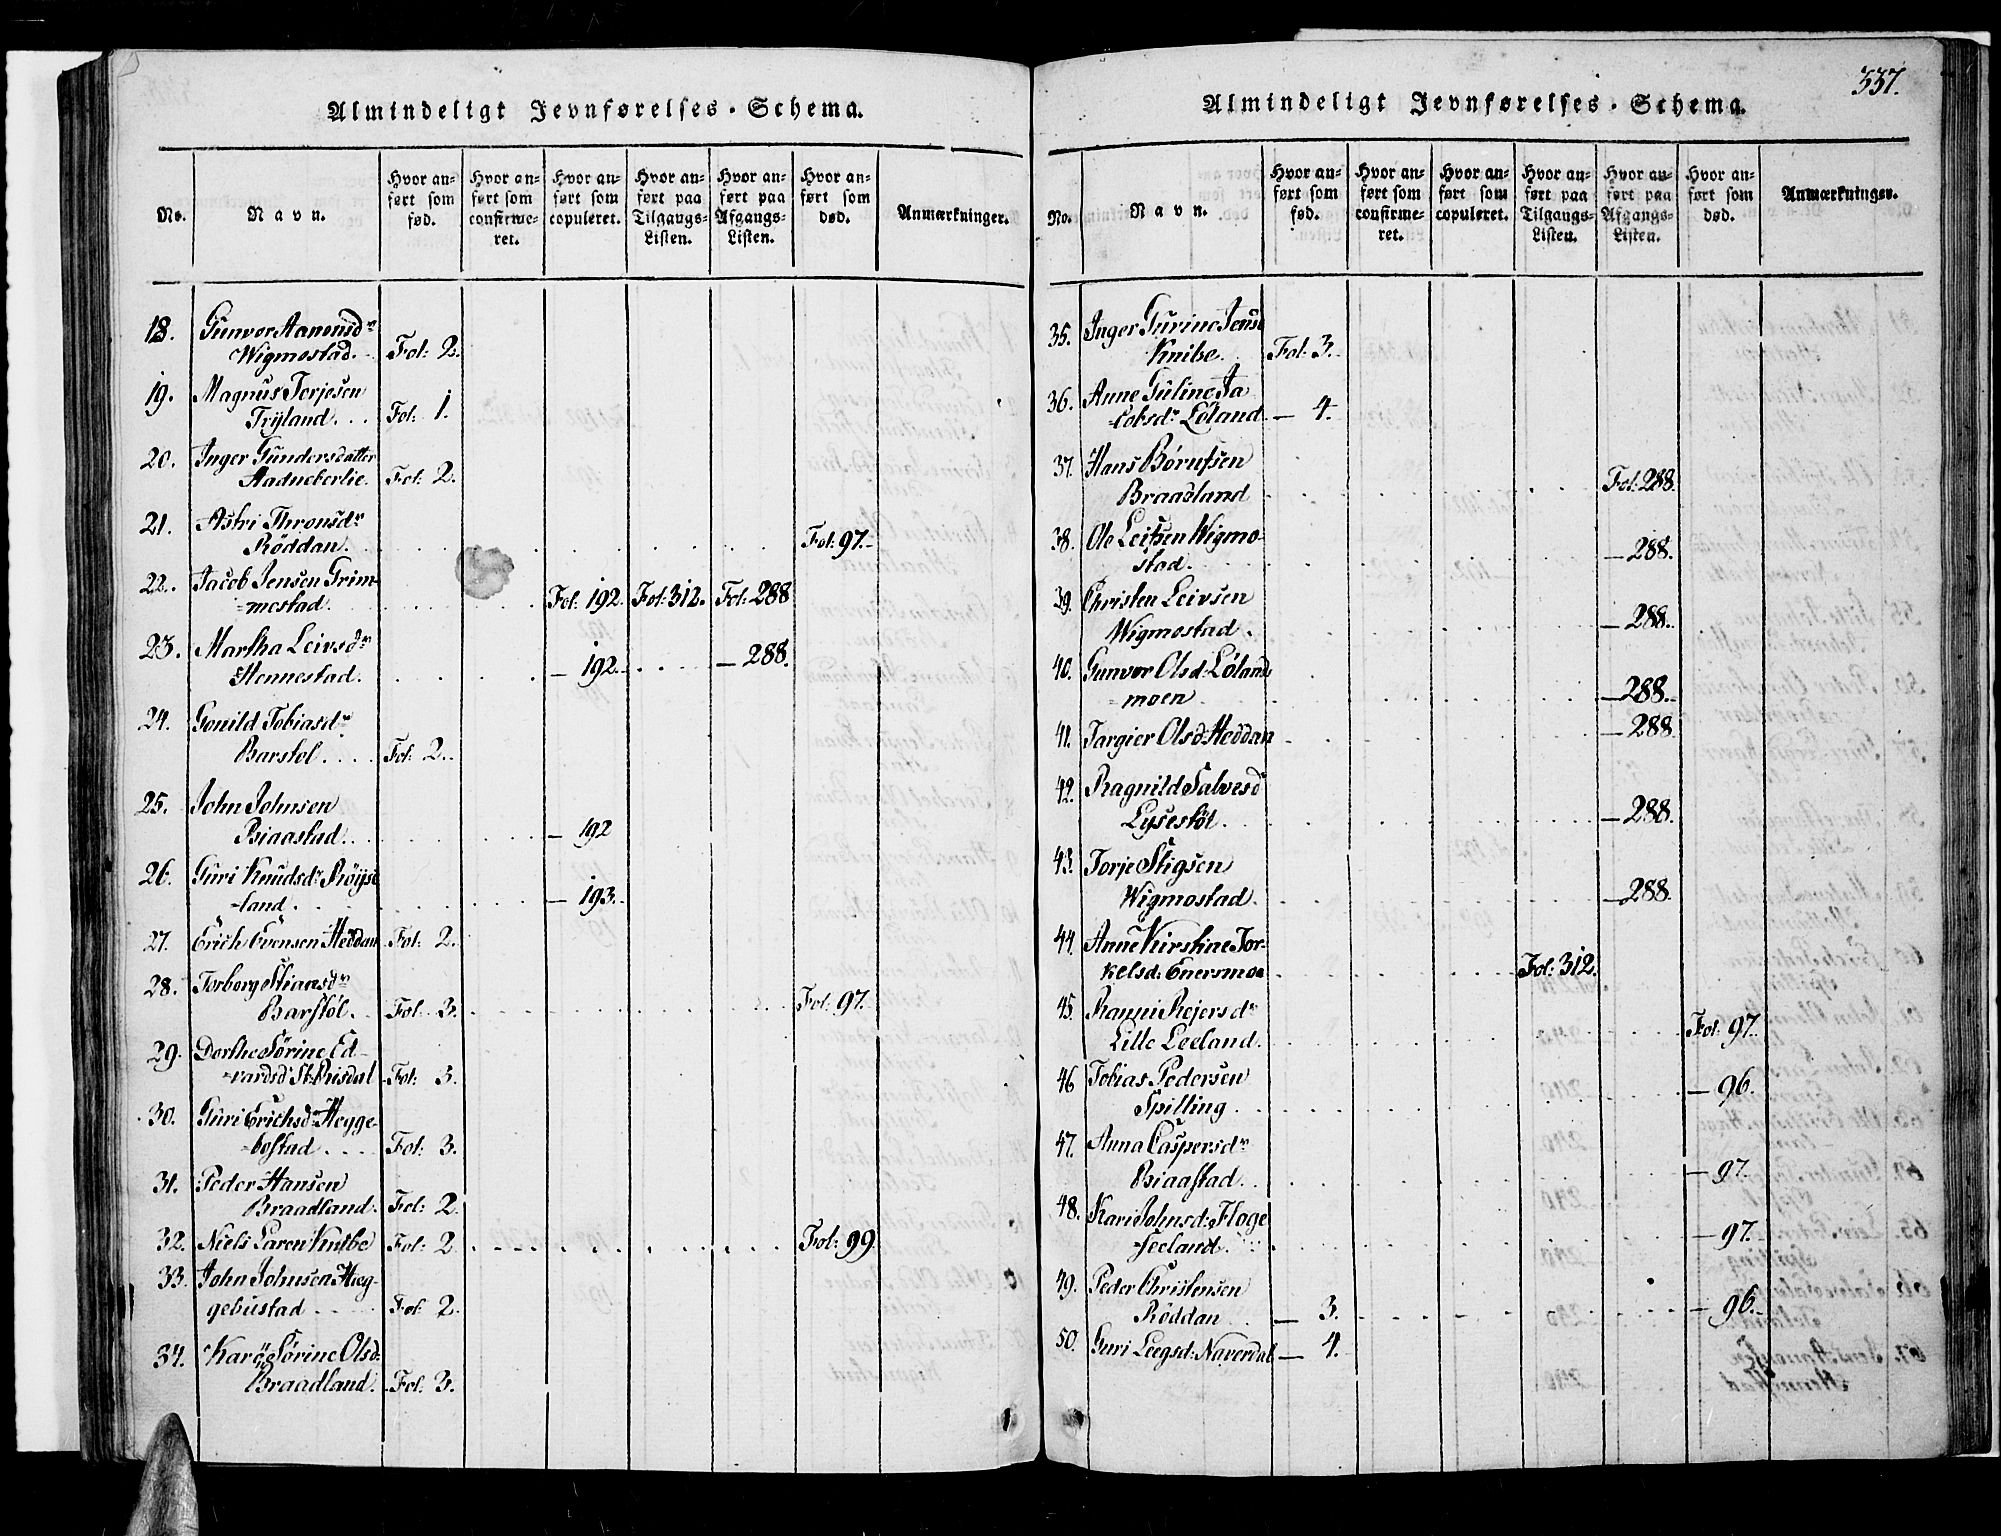 Almindeligt Jevnførelses-Schema.
No.
Navn.
Hvor an-
ført som
fød.
Hvor an-
ført som
confirme-
ret.
Hvor an-
ført som
copuleret.
Hvor an-
ført paa
Tilgangs-
Listen.
Hvor an-
ført paa
Afgangs-
Listen.
Hvor an-
ført som
død.
Anmærkninger.
18. Gunvor Aanensdr
Wigmostad. Fol: 2.
19. Magnus Terjesen
Tryland... Fol: 1.
20. Inger Gundersdatter
Aadneberlie. Fol: 2.
21. Astri Thronsdr
Røddan. Fol: 97.
22. Jacob Jensen Grim-
=mestad. Fol: 192. Fol: 312. Fol: 288
23. Martha Leivsdr
Hennestad. — 192. — 288.
24. Gonild Tobiasdr
Barstøl.... Fol: 2.
25. John Johnsen
Biaastad. — 192
26. Guri Knudsdr Röyse
-land. — 193.
27. Erich Evensen Heddan Fol: 2.
28. Torborg Stiansdr
Barstøl. Fol: 3. Fol: 97.
29. Dorthe Sørine Ed-
-vardsdr St: Risdal Fol: 3.
30. Guri Erichsdr Hegge-
-bostad.... Fol: 3.
31. Peder Hansen
Braadland. Fol: 2.
32. Niels Laren Knibe Fol: 2. Fol: 99.
33. John Johnsen Heg-
gebustad.... Fol: 2.
34. Karö Sørine Olsd:
Braadland. Fol: 3.
337.
Almindeligt Jevnførelses-Schema.
No.
Navn.
Hvor an-
ført som
fød.
Hvor an-
ført som
confirme-
ret.
Hvor an-
ført som
copuleret.
Hvor an-
ført paa
Tilgangs-
Listen.
Hvor an-
ført paa
Afgangs-
Listen.
Hvor an-
ført som
død.
Anmærkninger.
35. Inger Turine Jensd
Knibe. Fol: 3.
36. Anne Juline Ja
=cobsdr Løland. — 4.
37. Hans Børufsen
Braadland Fol: 288.
38. Ole Leifsen Wigmo-
stad. — 288.
39. Christen Leivsen
Wigmostad. — 288.
40. Gunvor Olsd: Lølands
=moen. — 288.
41. Targier Olsd: Heddan — 288.
42. Ragnild Salvesdr
Lysestøl. — 288.
43. Torje Stigsen
Wigmostad. — 288.
44. Anne Kirstine Tor-
kelsd: Enersmoe Fol: 312.
45. Ranni Rejersdr
Lille Leeland. Fol: 97.
46 Tobias Pedersen
Spilling. — 96.
47. Anna Caspersdr
Biaastad. — 97.
48. Kari Johnsd: Floge
-seeland. — 97.
49. Peder Christensen
Røddan — 3. — 96.
50. Guri Leegsd: Naverdal — 4.